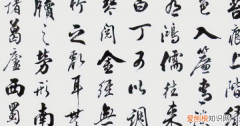 色入簾青談
鴻儒往來
白丁可以調
琴閱金經無
竹之亂耳無
牘之勞形南
諸葛廬西蜀